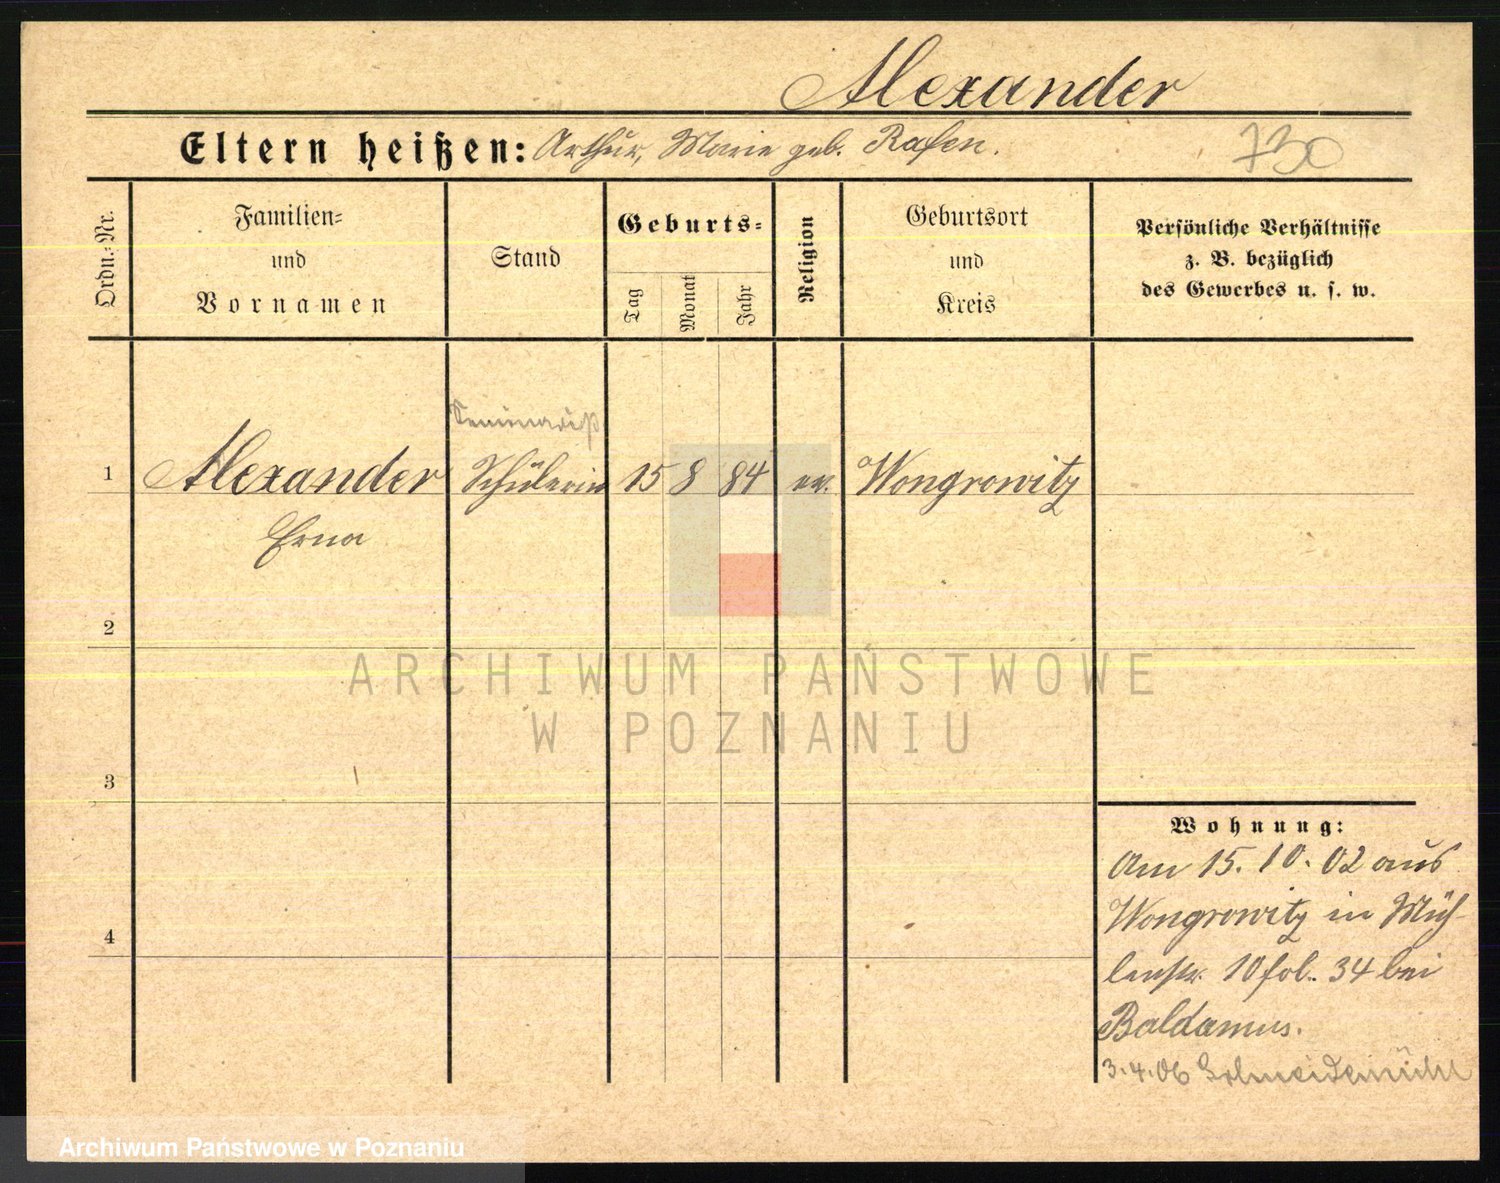 Alexander
Eltern heißen: Arthur, Marie geb. Rafen.
730
Ordn.-Nr.
Familien-
und
Vornamen
Stand
Geburts-
Tag
Monat
Jahr
Religion
Geburtsort
und
Kreis
Persönliche Verhältnisse
z. B. bezüglich
des Gewerbes u. s. w.
Seminarist
1 Alexander Schülerin 15 8 84 ev. Wongrowitz
Erna
2
ARCHIWUM PAŃSTWOWE
W POZNANIU
3
Wohnung:
Am 15. 10. 02 aus
Wongrowitz in Müh-
lenstr. 10 fol. 34 bei
4
Baldamus.
3.4.06 Schneidemühl
Archiwum Państwowe w Poznaniu